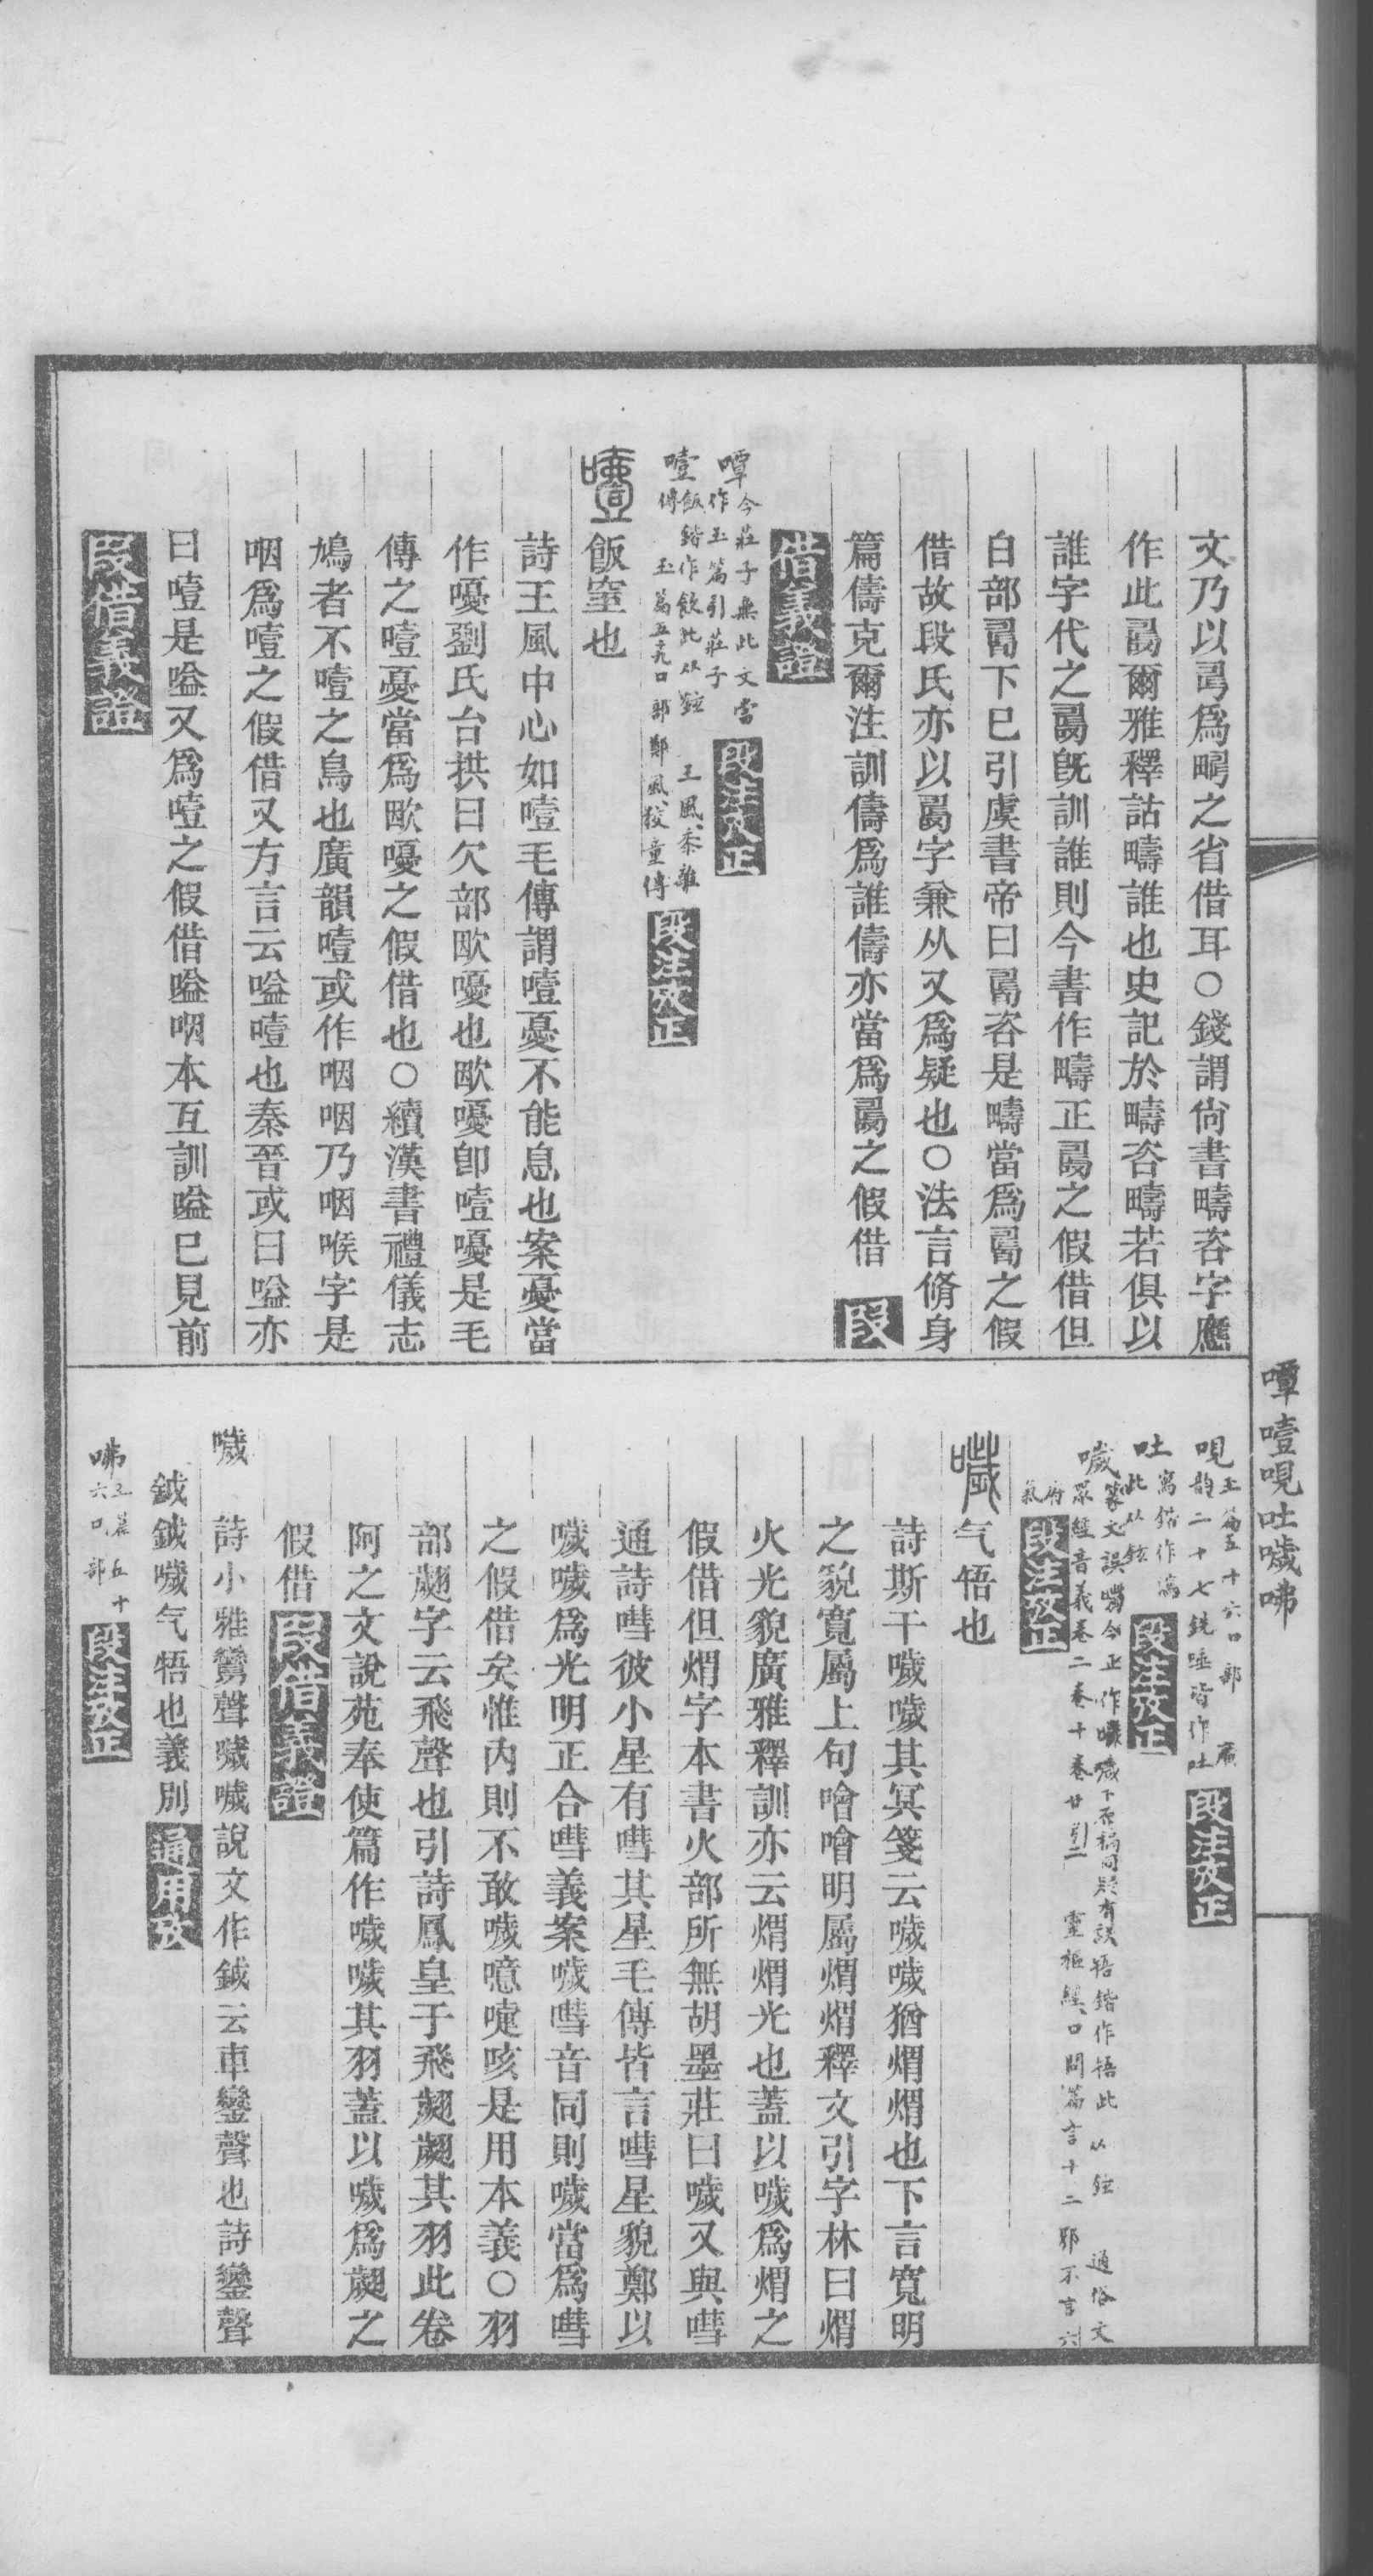 文乃以𠷎爲𤲮之省借耳○錢謂尙書疇咨字應
作此𠷎爾雅釋詁疇誰也史記於疇咨疇若俱以
誰字代之𠷎旣訓誰則今書作疇正𠷎之假借但
白部𠷎下已引虞書帝曰𠷎咨是疇當爲𠷎之假
借故段氏亦以𠷎字兼从又爲疑也○法言脩身
篇儔克爾注訓儔爲誰儔亦當爲𠷎之假借 叚
借義證
嘾 今莊子無此文當
作玉篇引莊子 段注攷正
噎 飯鍇作飲此从鉉 王風黍離
傳 玉篇五六口部 鄭風狡童傳 段注攷正
噎 飯窒也
詩王風中心如噎毛傳謂噎憂不能息也案憂當
作嚘劉氏台拱曰欠部歐嚘也歐嚘卽噎嚘是毛
傳之噎憂當爲歐嚘之假借也○續漢書禮儀志
鳩者不噎之鳥也廣韻噎或作咽咽乃咽喉字是
咽爲噎之假借又方言云嗌噎也秦晉或曰嗌亦
曰噎是嗌又爲噎之假借嗌咽本互訓嗌已見前
叚借義證
嘾噎哯吐噦咈
哯 玉篇五十六口部 廣
韻二十七銑唾皆作吐 段注攷正
吐 寫鍇作瀉
此从鉉 段注攷正
噦 篆文誤 今正作 悟鍇作牾此从鉉 通俗文
眾經音義卷二卷十卷廿引 靈樞經口問篇言十二邪不言六
府
氣 段注攷正
噦 气牾也
詩斯干噦噦其冥箋云噦噦猶熐熐也下言寬明
之貌寬屬上句噲噲明屬熐熐釋文引字林曰熐
火光貌廣雅釋訓亦云熐熐光也蓋以噦爲熐之
假借但熐字本書火部所無胡墨莊曰噦又與嘒
通詩嘒彼小星有嘒其星毛傳皆言嘒星貌鄭以
噦噦爲光明正合嘒義案噦嘒音同則噦當爲嘒
之假借矣惟內則不敢噦噫嚏咳是用本義○羽
部翽字云飛聲也引詩鳳皇于飛翽翽其羽此卷
阿之文說苑奉使篇作噦噦其羽蓋以噦爲翽之
假借 叚借義證
噦 詩小雅鸞聲噦噦說文作鉞云車鑾聲也詩鑾聲
鉞鉞噦气牾也義別 通用攷
咈 玉篇五十
六口部 段注攷正